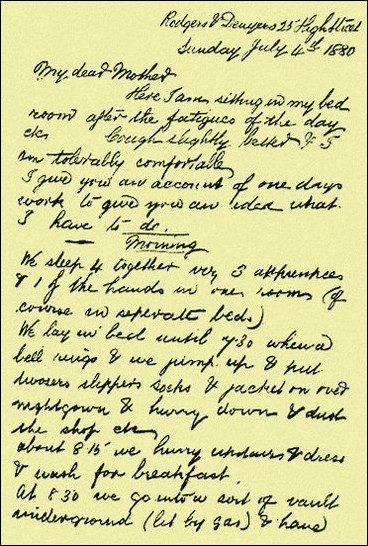 Rodgers & Denyers 25 High Street
Sunday July 4th 1880
My dear Mother
Here I am sitting in my bed
room after the fatigues of the day
etc Cough slightly better & I
am tolerably comfortable
I give you an account of one days
work to give you an idea what
I have to do.
Morning
We sleep 4 together 3 apprentices
& 1 of the hands in one room (of
course in seperate beds)
We lay in bed until 7.30 when a
bell rings & we jump up & put
trousers slippers socks & jacket on over
nightgown & hurry down & dust
the shop etc
about 8.15 we hurry upstairs & dress
& wash for breakfast.
At 8.30 we go into a sort of vault
underground (lit by gas) & have